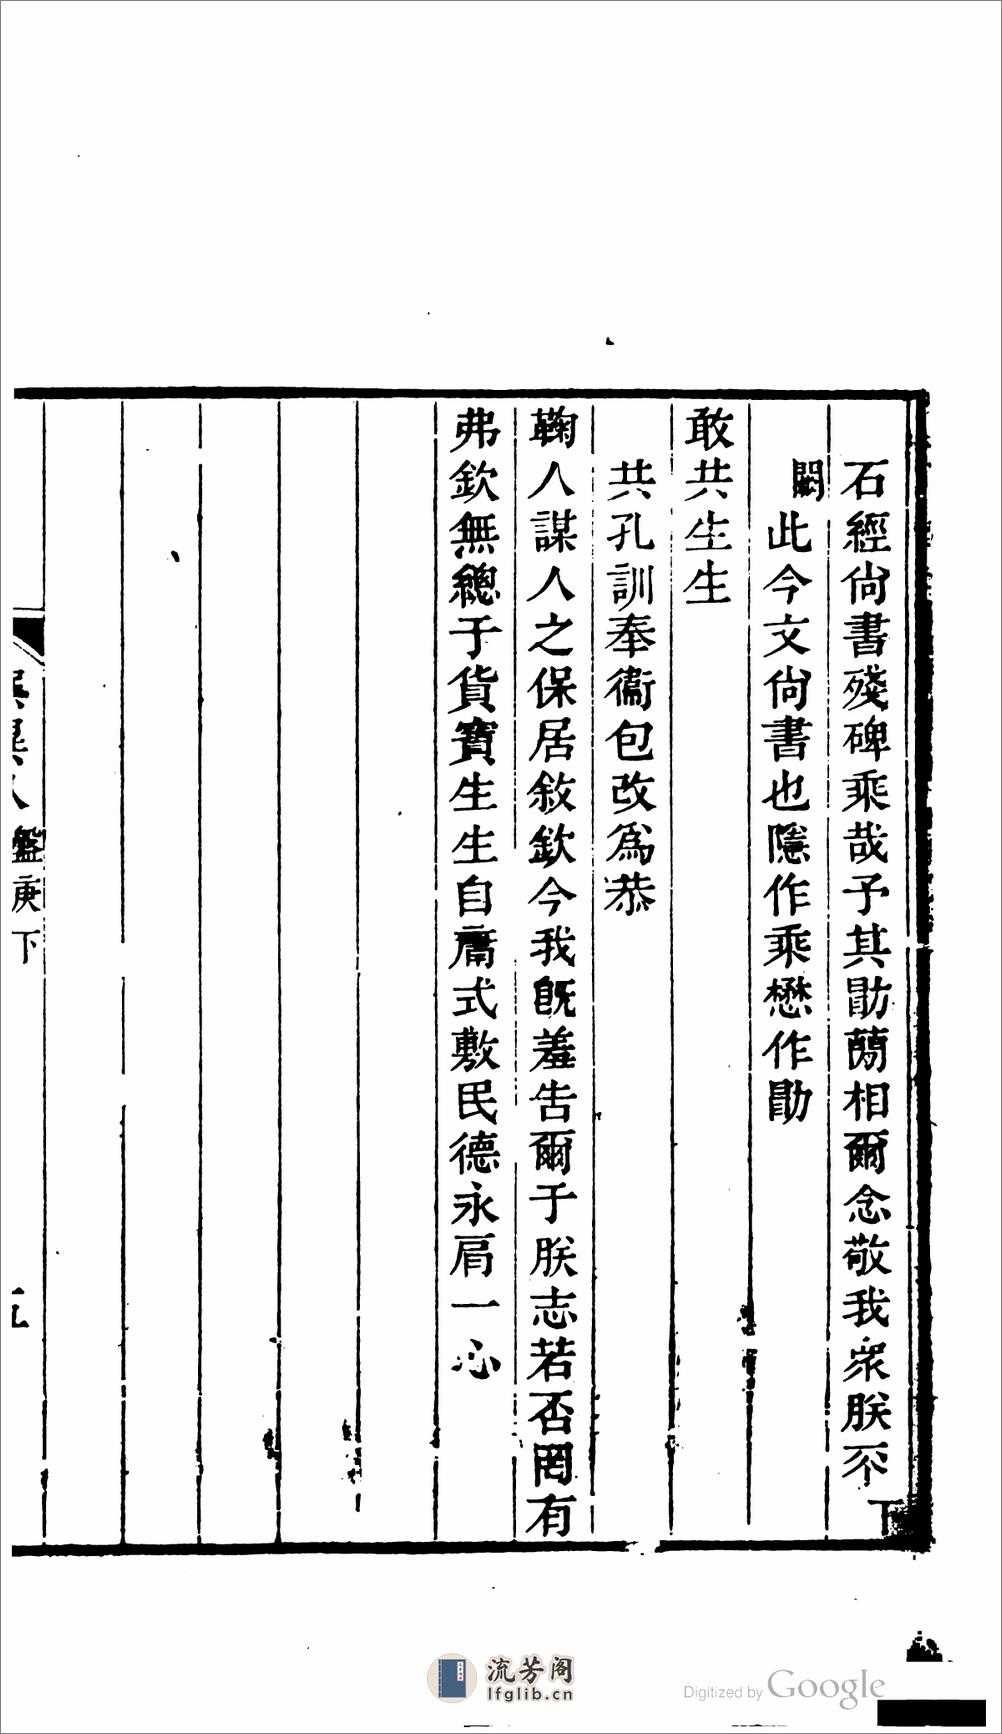 石經尙書殘碑乘哉予其勖蕳相爾念敬我衆朕不下
闕此今文尙書也隱作乘懋作勖
敢共生生
共孔訓奉衞包改爲恭
鞠人謀人之保居敘欽今我旣羞告爾于朕志若否罔有
弗欽無總于貨寶生生自庸式敷民德永肩一心
盤庚下
五
流芳阁
lfglib.cn
Digitized by Google